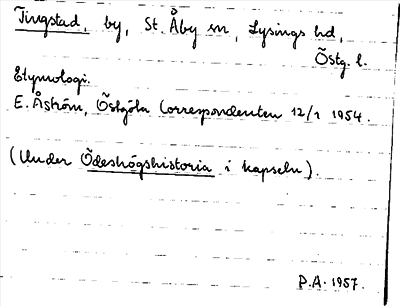 Tingstad, by, St. Åby sn, Lysings hd,
Östg. l.
Etymologi.
E. Åström, Östgöta Correspondenten 12/1 1954.
(Under Ödeshögshistoria i kapseln).
P.A. 1957.